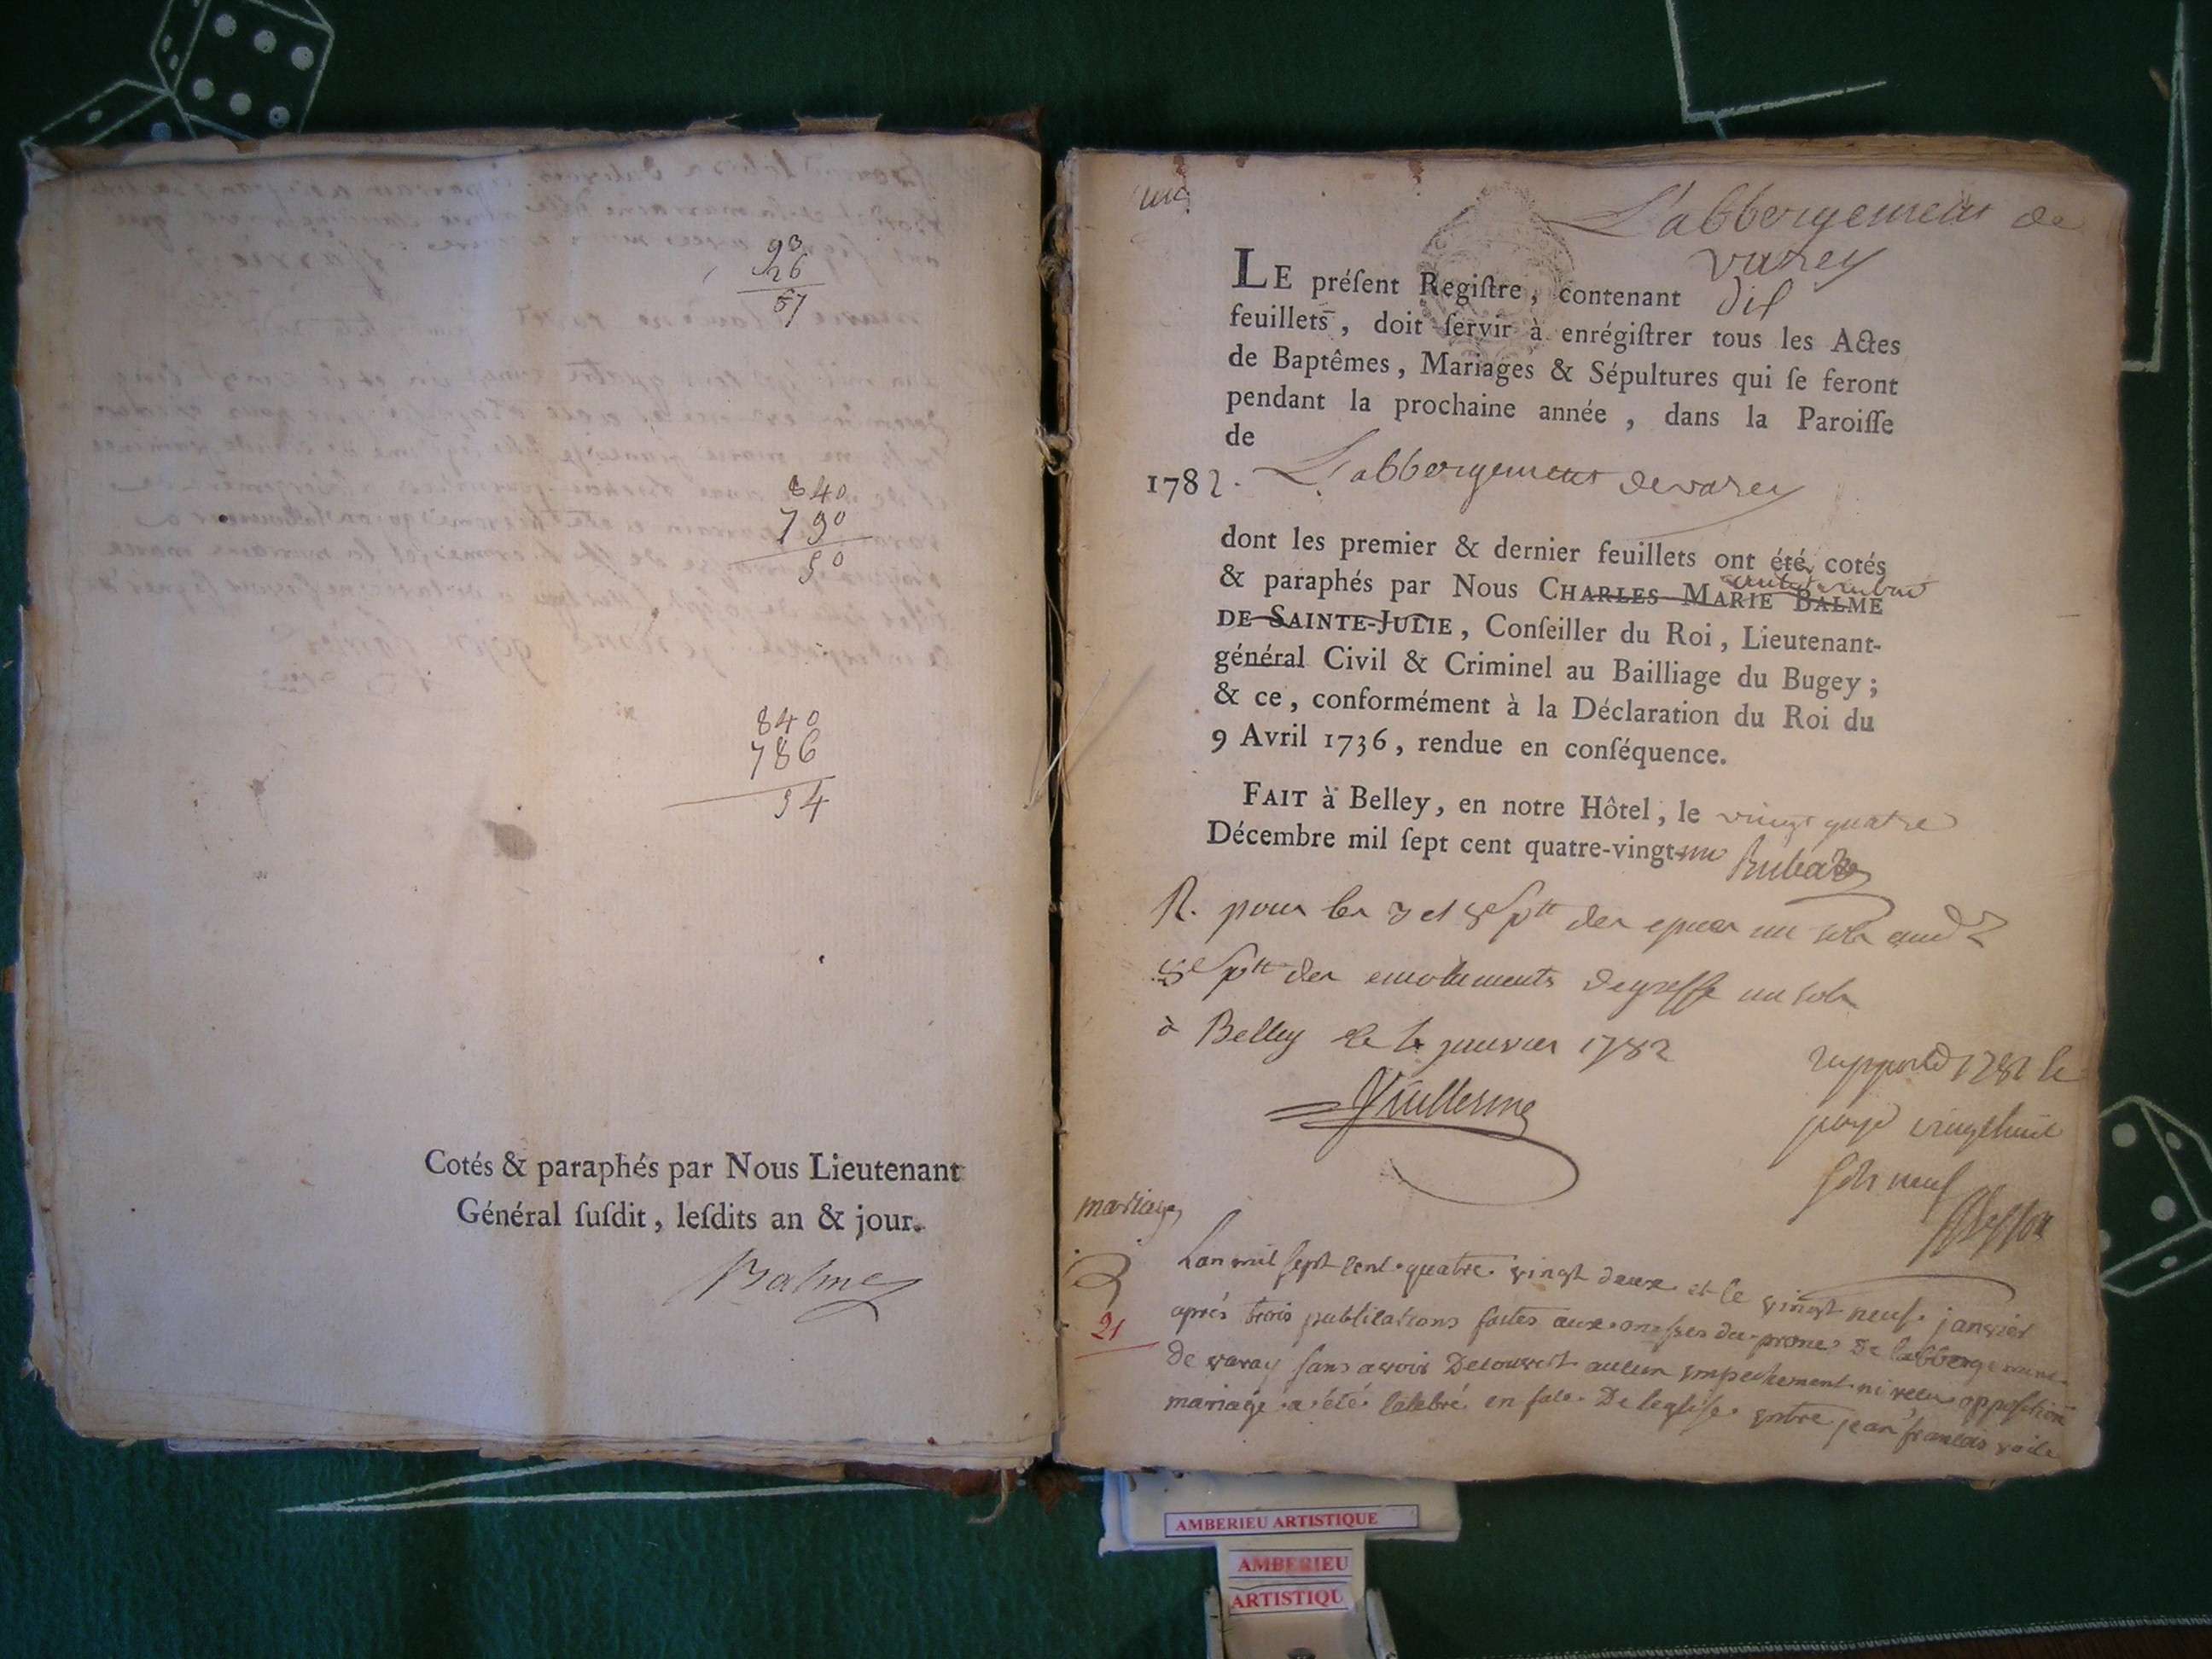 93
26
57
840
790
50
840
786
54
Cotés & paraphés par Nous Lieutenant
Général ſuſdit, leſdits an & jour.
Balme
un
L'abbergement de
varey
LE préſent Regiſtre, contenant dix
feuillets, doit ſervir à enrégiſtrer tous les Actes
de Baptêmes, Mariages & Sépultures qui ſe feront
pendant la prochaine année, dans la Paroiſſe
de
1782. L'abbergement de varey
dont les premier & dernier feuillets ont été cotés
& paraphés par Nous CHARLES MARIE BALME
DE SAINTE-JULIE, Conſeiller du Roi, Lieutenant-
général Civil & Criminel au Bailliage du Bugey;
& ce, conformément à la Déclaration du Roi du
9 Avril 1736, rendue en conſéquence.
FAIT à Belley, en notre Hôtel, le vingt quatre
Décembre mil ſept cent quatre-vingt-un
R. pour les 3 et 8 s p tt des epices un sols
8 s p tt des emoluments de greffe un sols
à Belley le janvier 1782
Vuillerme
rapporté 1782 le
payé vingt huit
sols neuf
mariage
21
Lan mil sept cent quatre vingt deux et le vingt neuf janvier
aprés trois publications faites aux messes du prone de labbergement
de varay sans avoir decouvert aucun empechement ni recu opposition
mariage a été célébré en face de leglise entre jean françois
AMBERIEU ARTISTIQUE
AMBERIEU
ARTISTIQU